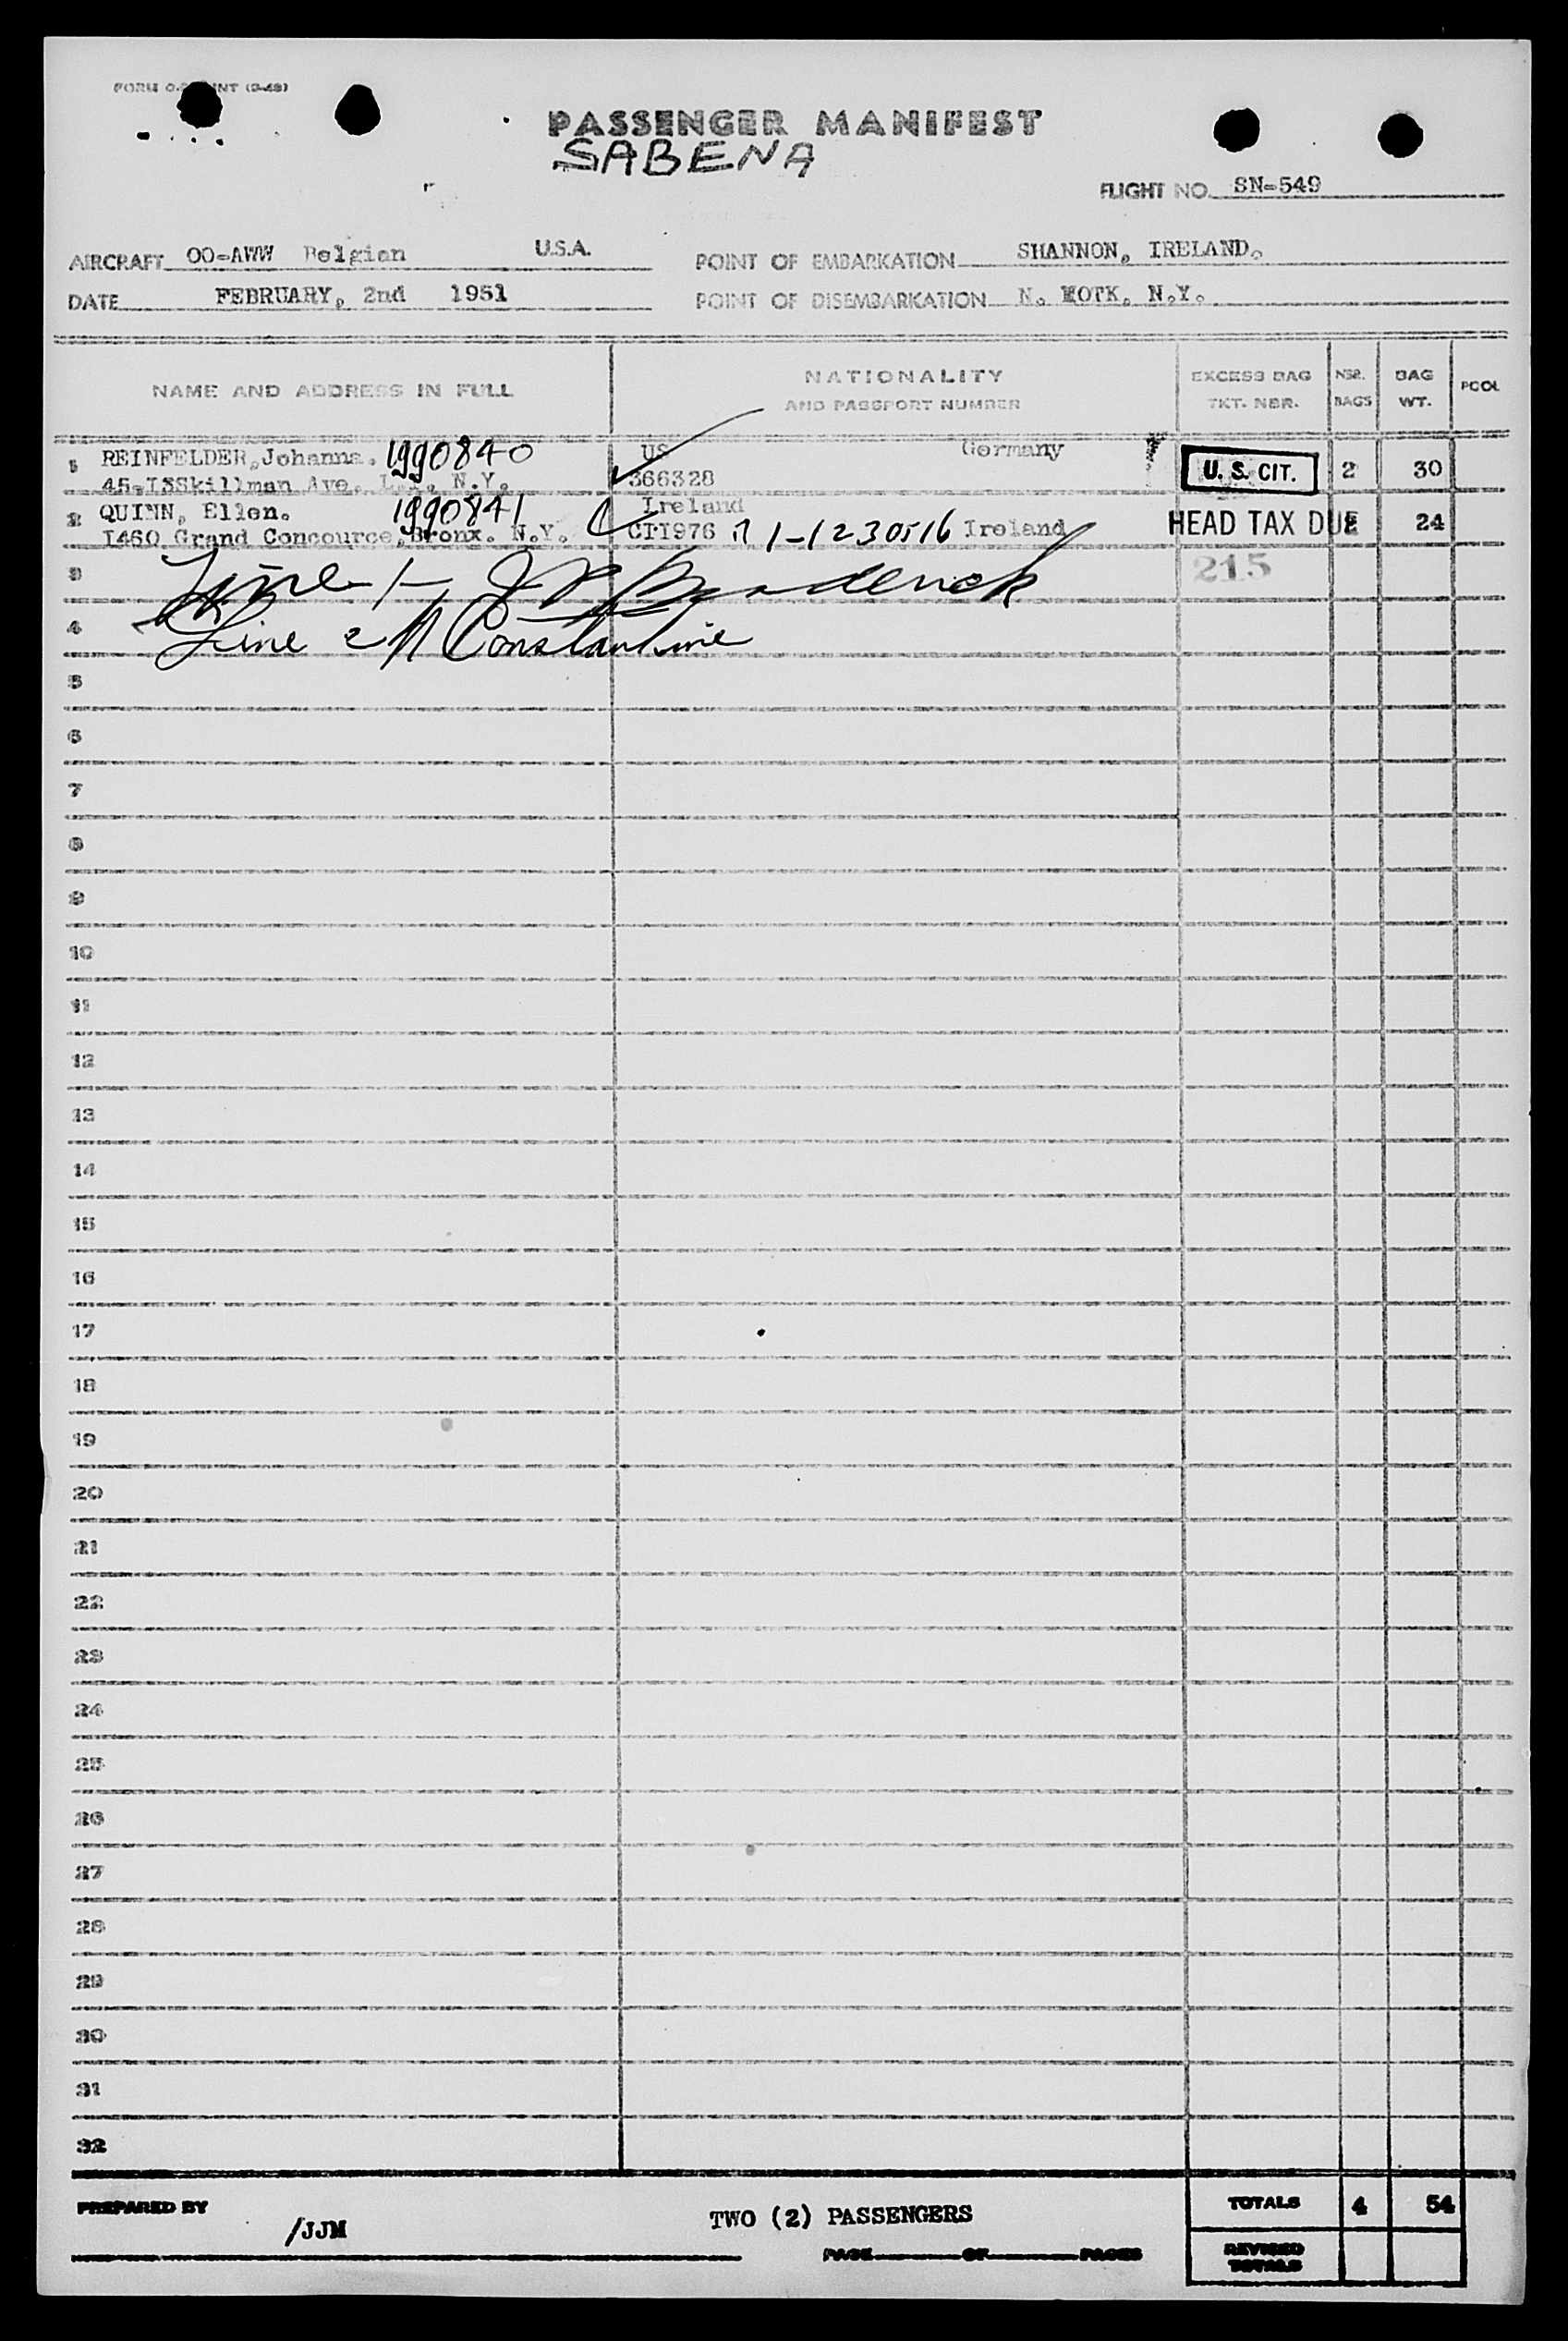 PASSENGER MANIFEST
SABENA
FLIGHT NO. SN-549
AIRCRAFT OO-AWW Belgian U.S.A. POINT OF EMBARKATION SHANNON, IRELAND.
DATE FEBRUARY, 2nd 1951 POINT OF DISEMBARKATION N. YOTK. N.Y.
NAME AND ADDRESS IN FULL NATIONALITY AND PASSPORT NUMBER EXCESS BAG TKT. NBR. NBR. BAGS BAG WT. POOL
1 REINFELDER, Johanna. 1990840 US Germany
45-I3Skillman Ave. L.I. N.Y. 366328 U. S. CIT. 2 30
2 QUINN, Ellen. 1990841 Ireland
I460 Grand Concource, Bronx. N.Y. CTI976 1-1230516 Ireland HEAD TAX DUE 24
3 Line 1- Broderick 215
4 Line 2 Constantine
5
6
7
8
9
10
11
12
13
14
15
16
17
18
19
20
21
22
23
24
25
26
27
28
29
30
31
32
PREPARED BY /JJM TWO (2) PASSENGERS TOTALS 4 54
PAGE OF PAGES REVISED TOTALS